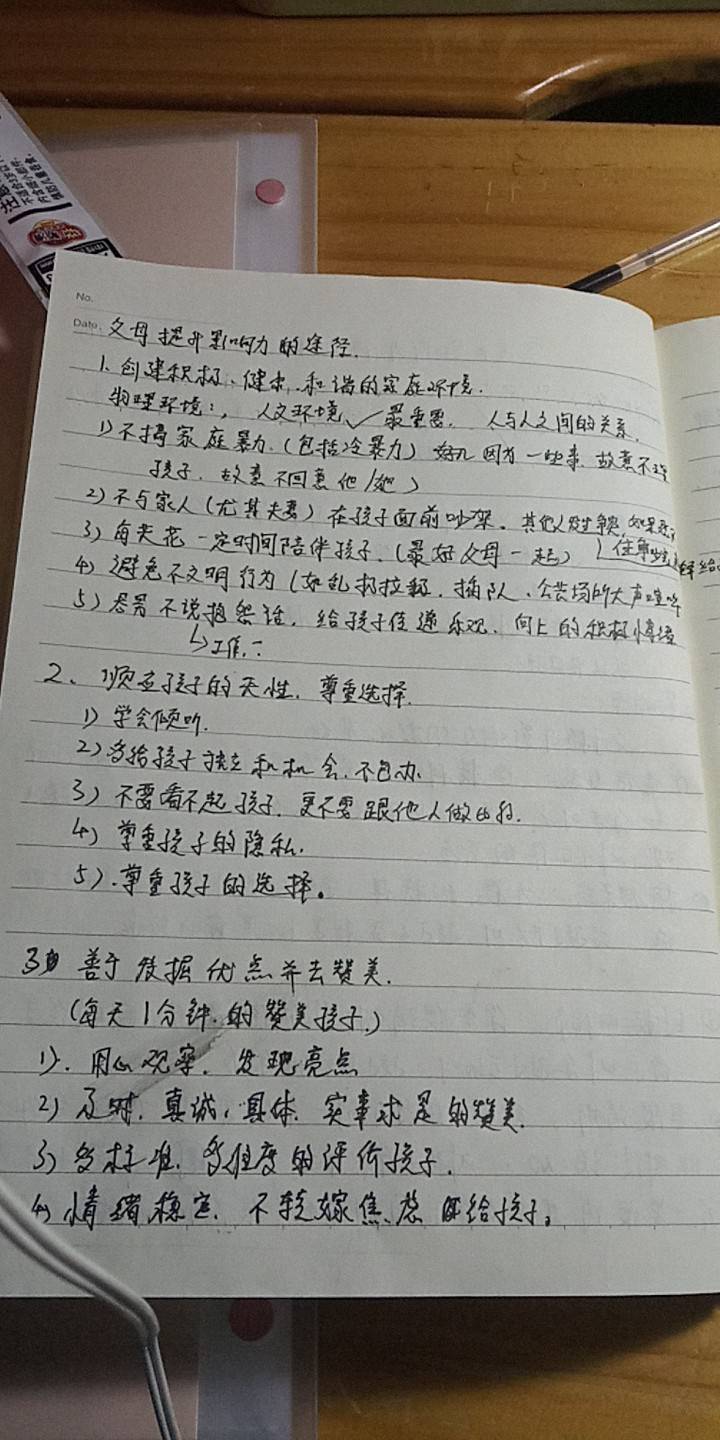 注意
No.
Date.
父母提升影响力的途径.
1. 创建积极、健康、和谐的家庭环境.
物理环境:, 人文环境✓最重要. 人与人之间的关系.
1) 不搞家庭暴力.(包括冷暴力) 因为一些事. 故意不理
孩子. 故意不回意他/她)
2) 不与家人(尤其夫妻) 在孩子面前吵架. 其他人发生争契
3) 每天花一定时间陪伴孩子.(最好父母一起)
4) 避免不文明行为(如乱扔垃圾. 插队. 公共场所大声喧哗
5) 尽量不说抱怨话. 给孩子传递乐观. 向上的积极情绪
↳工作.
2、顺应孩子的天性. 尊重选择.
1) 学会倾听.
2) 多给孩子独立和机会. 不包办.
3) 不要看不起孩子. 更不要跟他人做比较.
4) 尊重孩子的隐私.
5). 尊重孩子的选择。
3 善于发掘优点并去赞美.
(每天1分钟.的赞美孩子.)
1). 用心观察. 发现亮点
2) 及时. 真诚, 具体. 实事求是的赞美.
3) 多标准. 多维度的评价孩子.
4) 情绪稳定. 不转嫁焦虑给孩子。